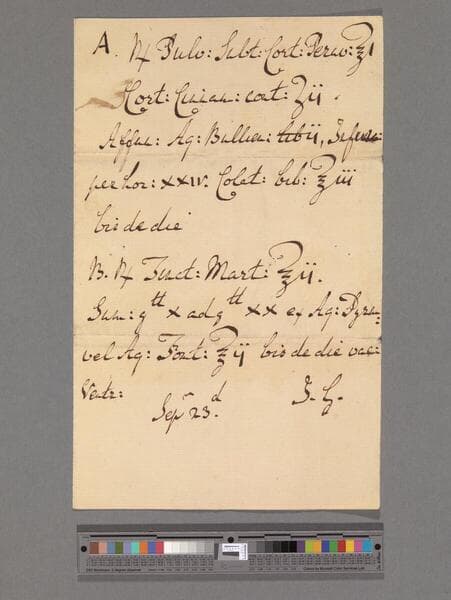 A. ℞ Pulv: Subt: Cort: Peruv: ℥i
Cort: Cinam: cont: ʒij.
Affun: Aq: Bullien: libij, Infund:
per hor: xxiv. Colat: bib: ℥iij
bis de die
B. ℞ Tinct: Mart: ℥ij.
Sum: gtt x ad gtt xx ex Aq: Pyrm:
vel Aq: Font: ℥ij bis de die vac:
Ventr:
Sepr 23.d J. G.